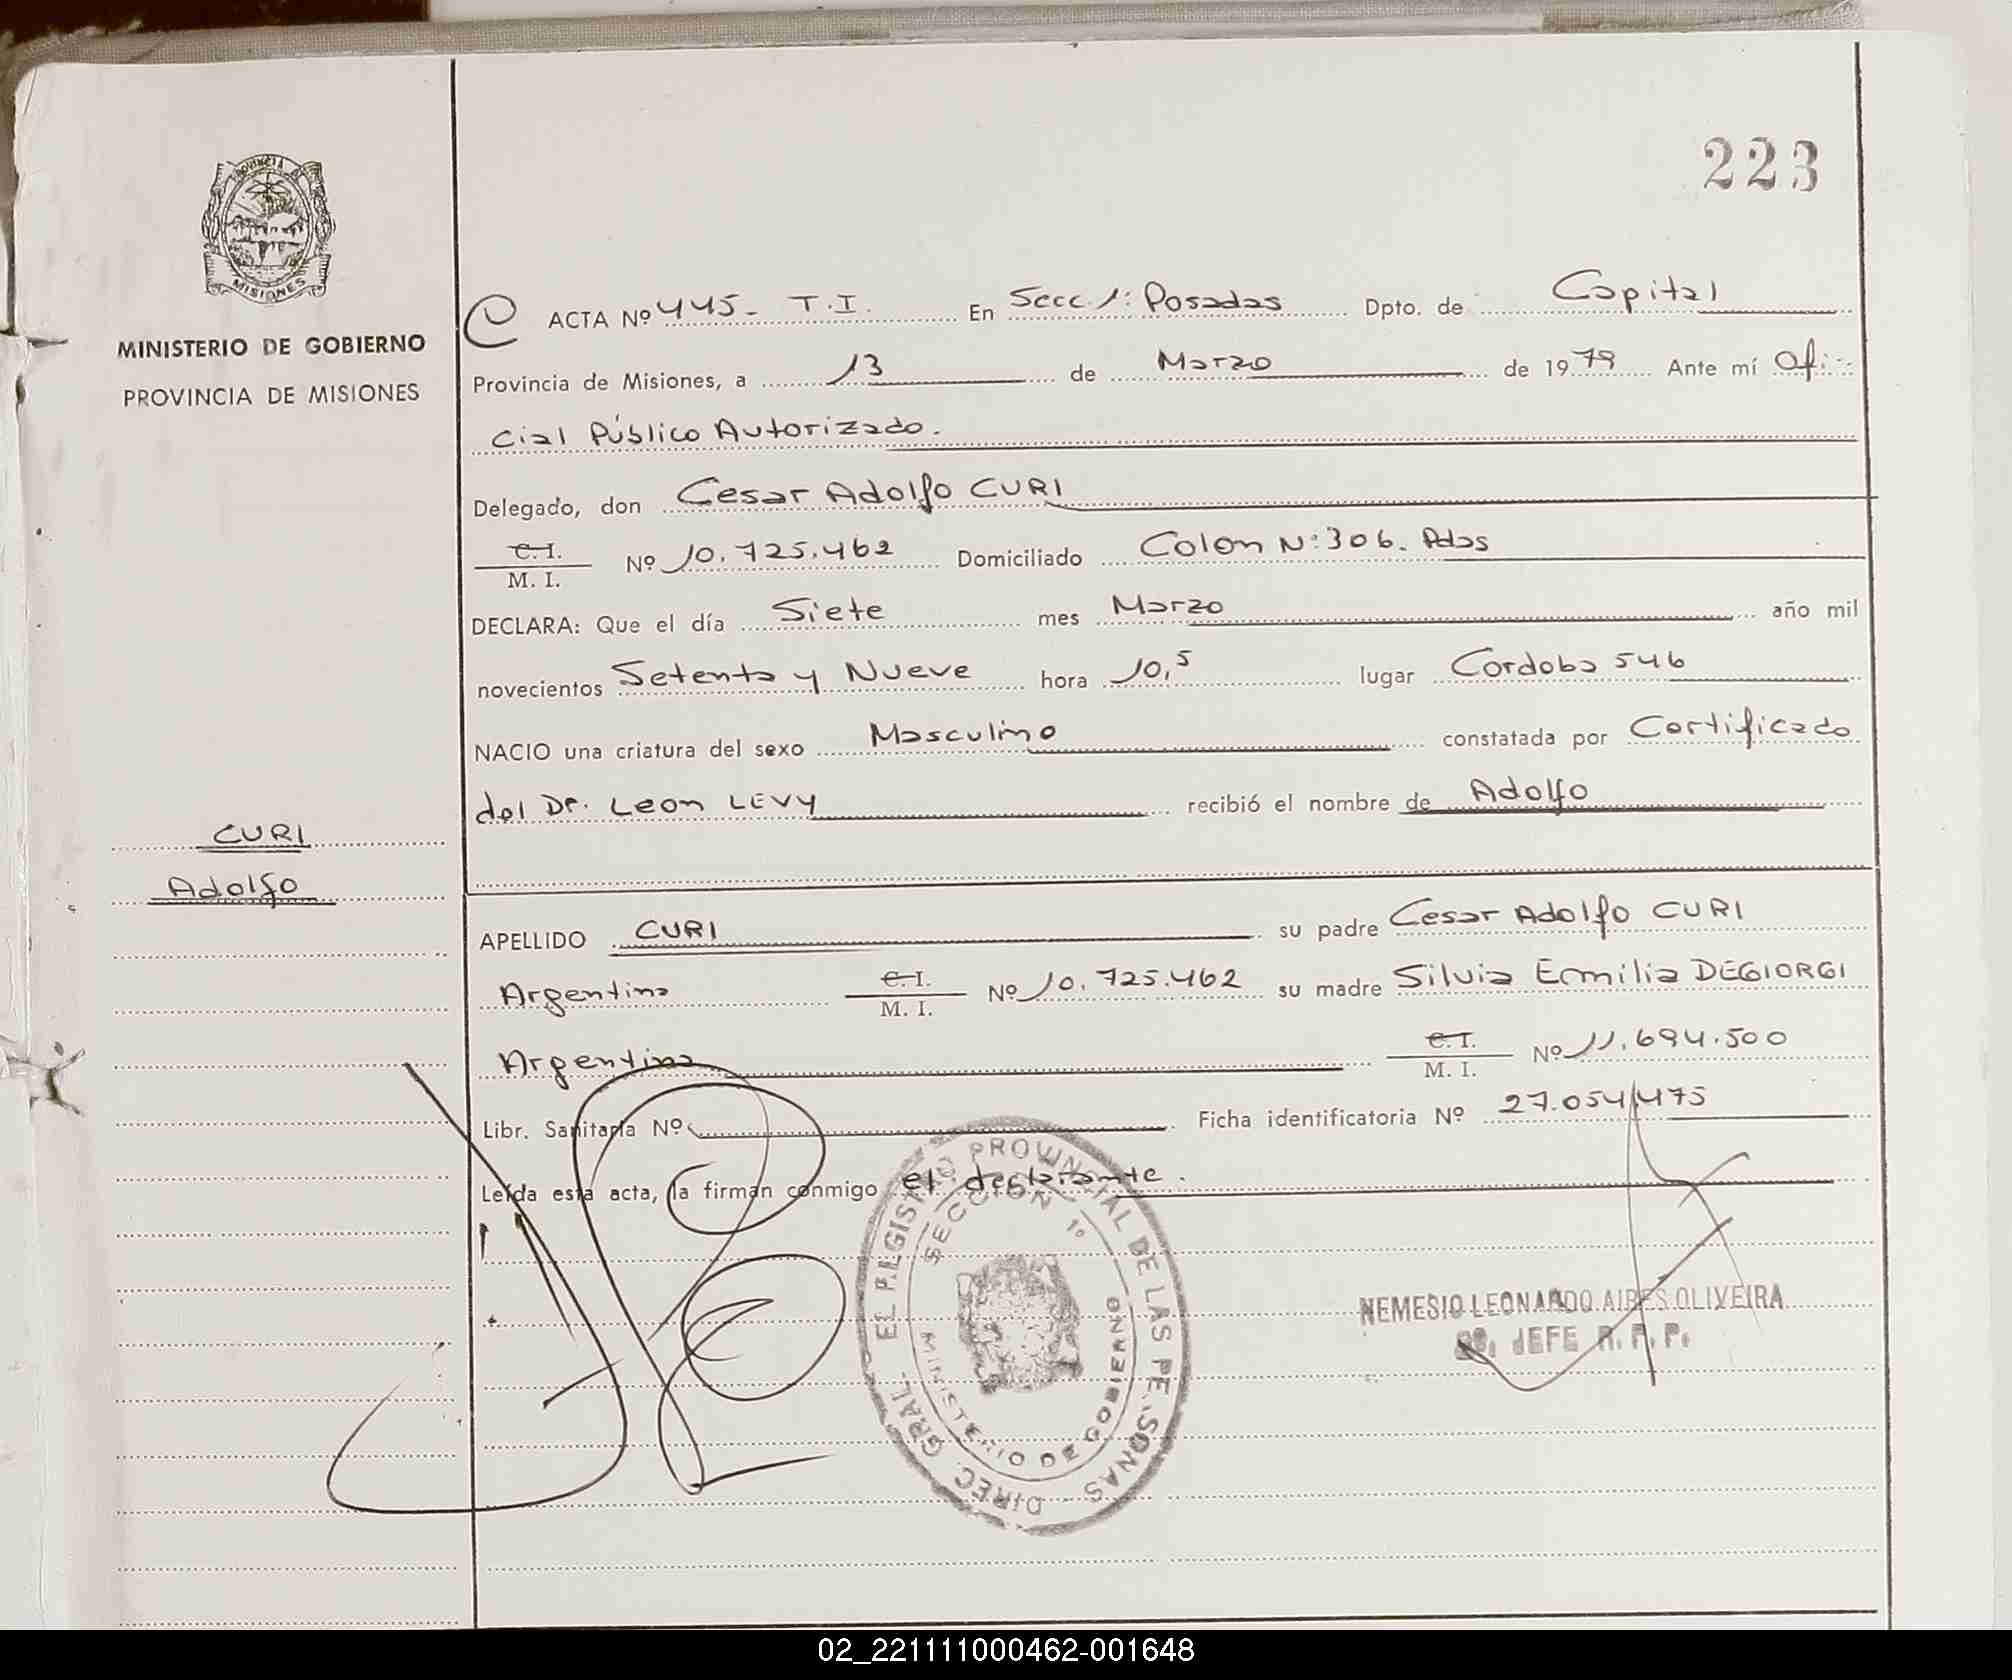 223
PROVINCIA DE
MISIONES
MINISTERIO DE GOBIERNO
PROVINCIA DE MISIONES
ACTA Nº 445- T.I. En Secc. 1: Posadas Dpto. de Capital
Provincia de Misiones, a 13 de Marzo de 1979 Ante mí Ofi-
cial Público Autorizado.
Delegado, don Cesar Adolfo CURI
C. I.
M. I.
Nº 10.725.462 Domiciliado Colon N: 306. Pdas
DECLARA: Que el día Siete mes Marzo año mil
novecientos Setenta y Nueve hora 10,5 lugar Cordoba 546
NACIO una criatura del sexo Masculino constatada por Certificado
del Dr. Leon LEVY recibió el nombre de Adolfo
CURI
Adolfo
APELLIDO CURI su padre Cesar Adolfo CURI
Argentino C. I. M. I. Nº 10.725.462 su madre Silvia Emilia DEGIORGI
Argentina C. I. M. I. Nº 11.694.500
Libr. Sanitaria Nº Ficha identificatoria Nº 27.054.475
Leída esta acta, la firman conmigo el declarante.
DIREC. GRAL. EL REGISTRO PROVINCIAL DE LAS PERSONAS
SECCION 1º
MINISTERIO DE GOBIERNO
NEMESIO LEONARDO AIRES OLIVEIRA
JEFE R. P. P.
02_221111000462-001648